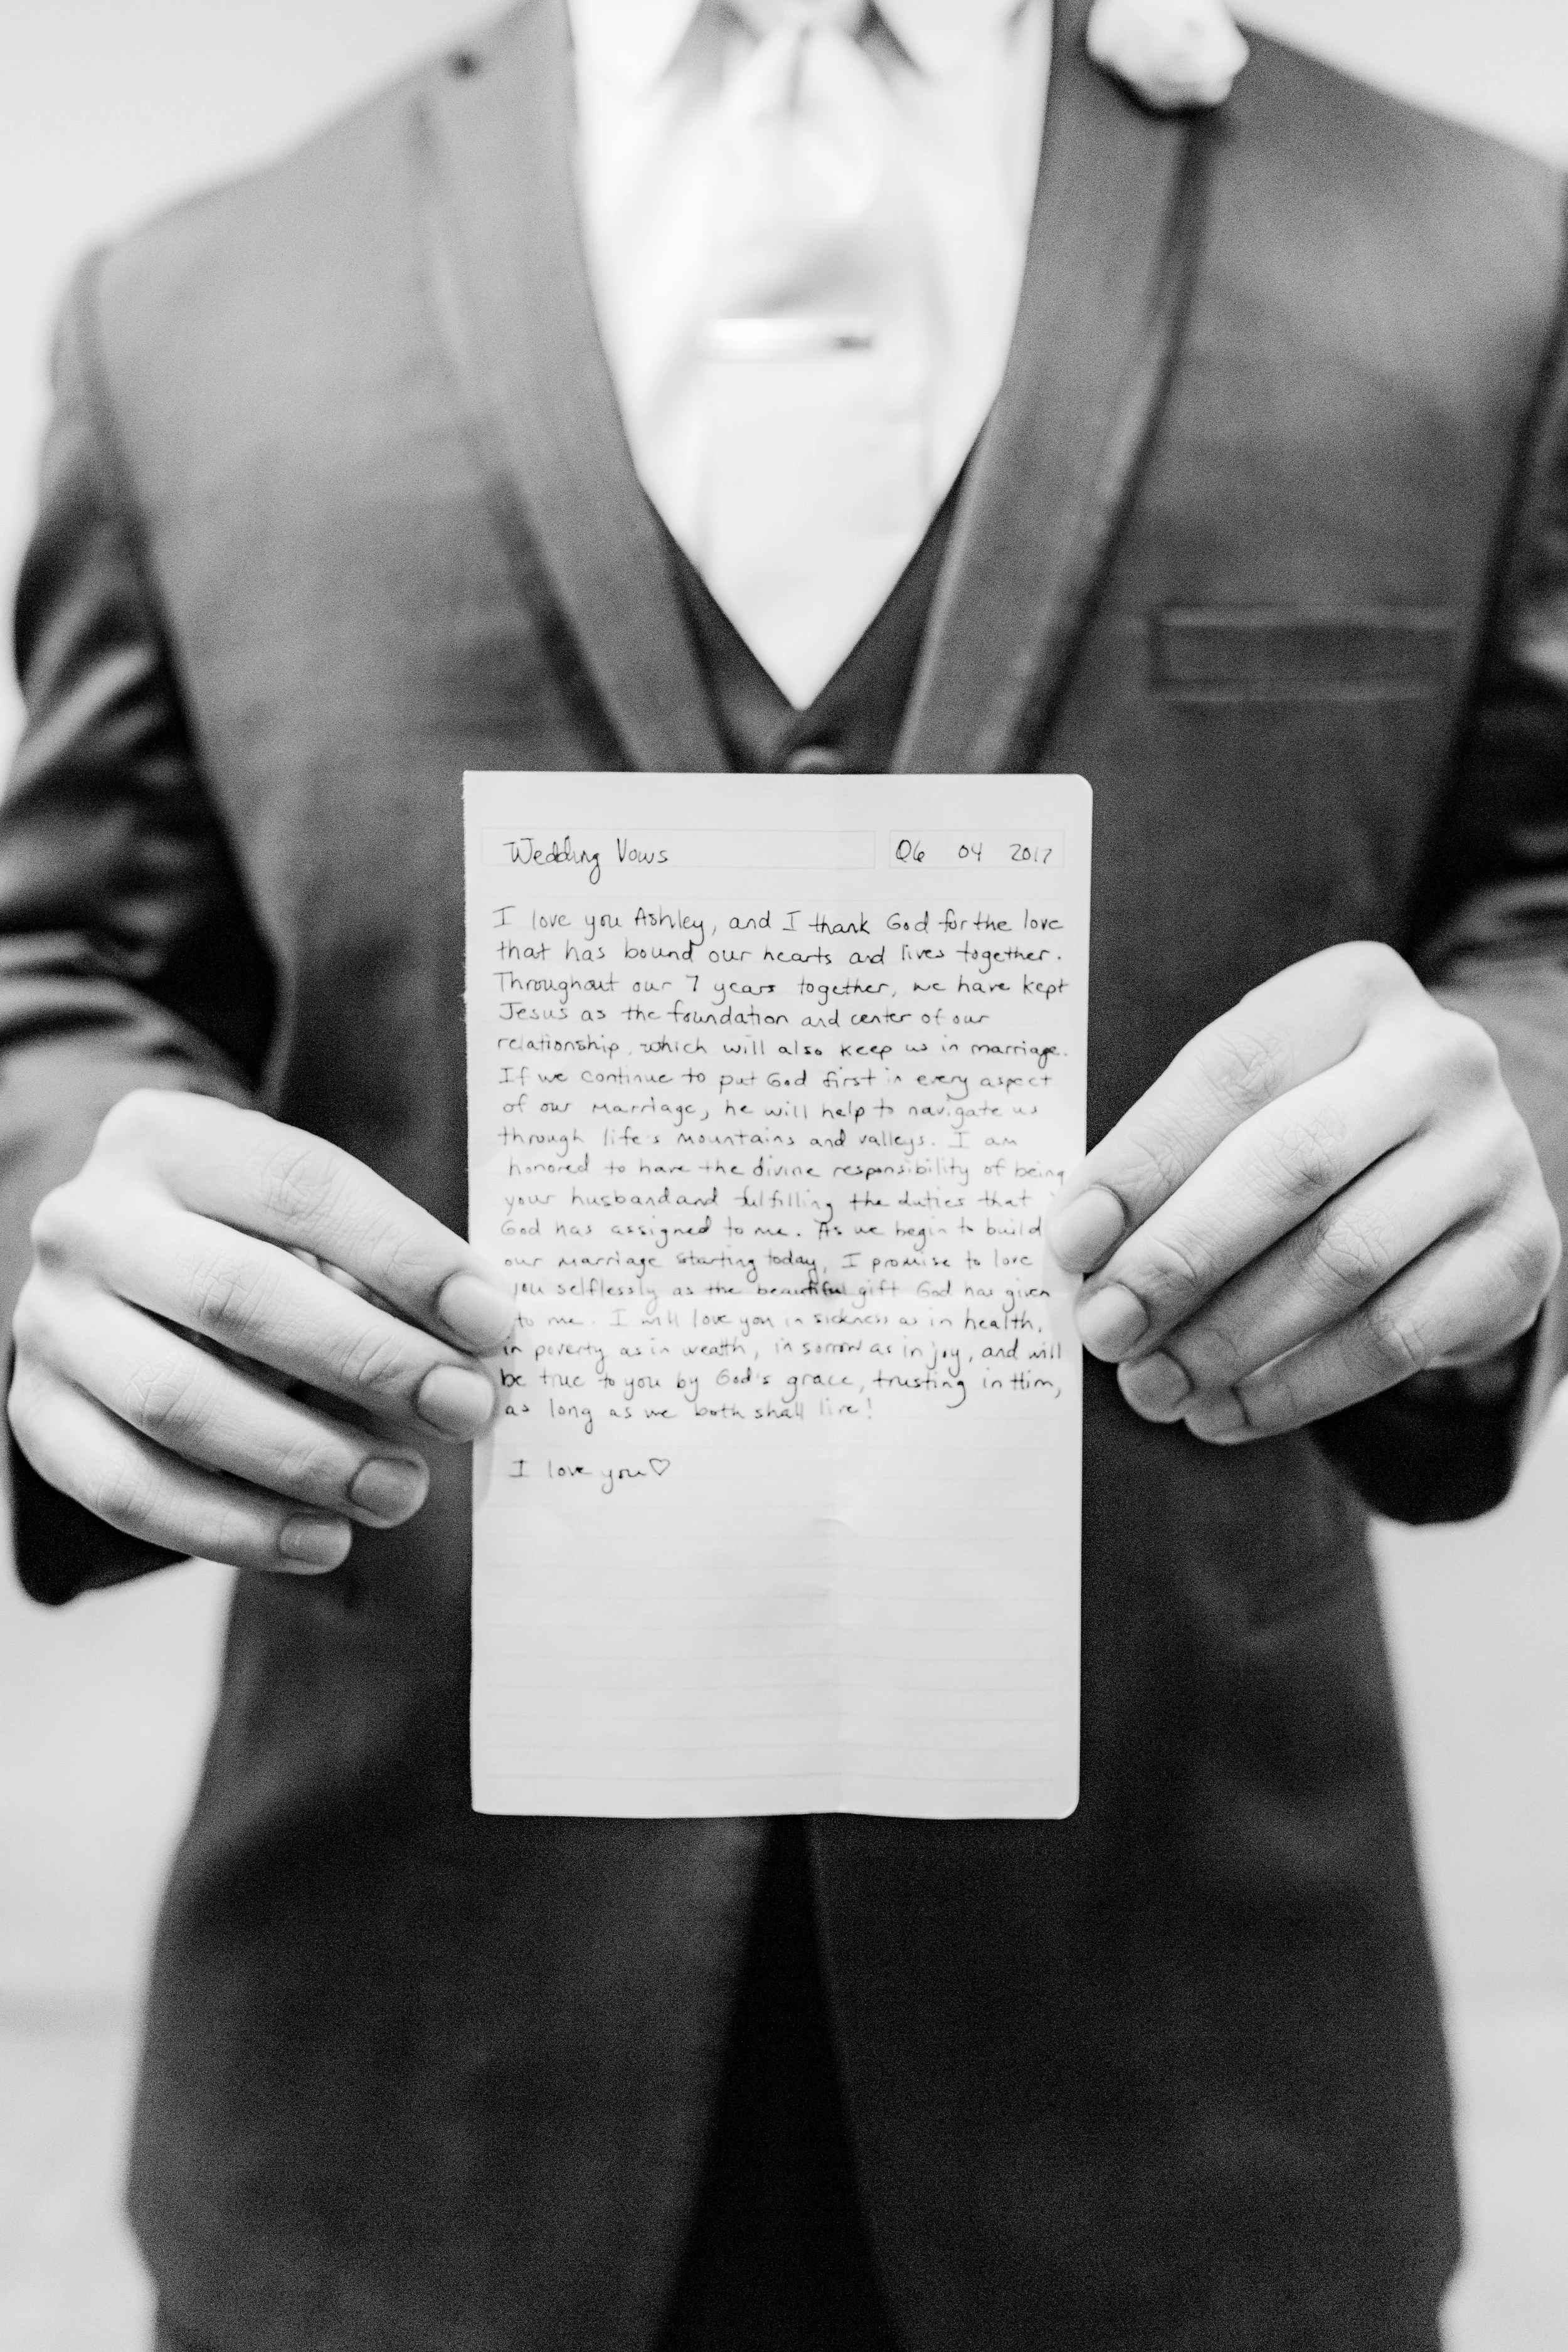 Wedding Vows 06 04 2017
I love you Ashley, and I thank God for the love
that has bound our hearts and lives together.
Throughout our 7 years together, we have kept
Jesus as the foundation and center of our
relationship, which will also keep us in marriage.
If we continue to put God first in every aspect
of our marriage, he will help to navigate us
through life's mountains and valleys. I am
honored to have the divine responsibility of being
your husband and fulfilling the duties that
God has assigned to me. As we begin to build
our marriage starting today, I promise to love
you selflessly as the beautiful gift God has given
to me. I will love you in sickness as in health,
in poverty as in wealth, in sorrow as in joy, and will
be true to you by God's grace, trusting in Him,
as long as we both shall live!
I love you♡